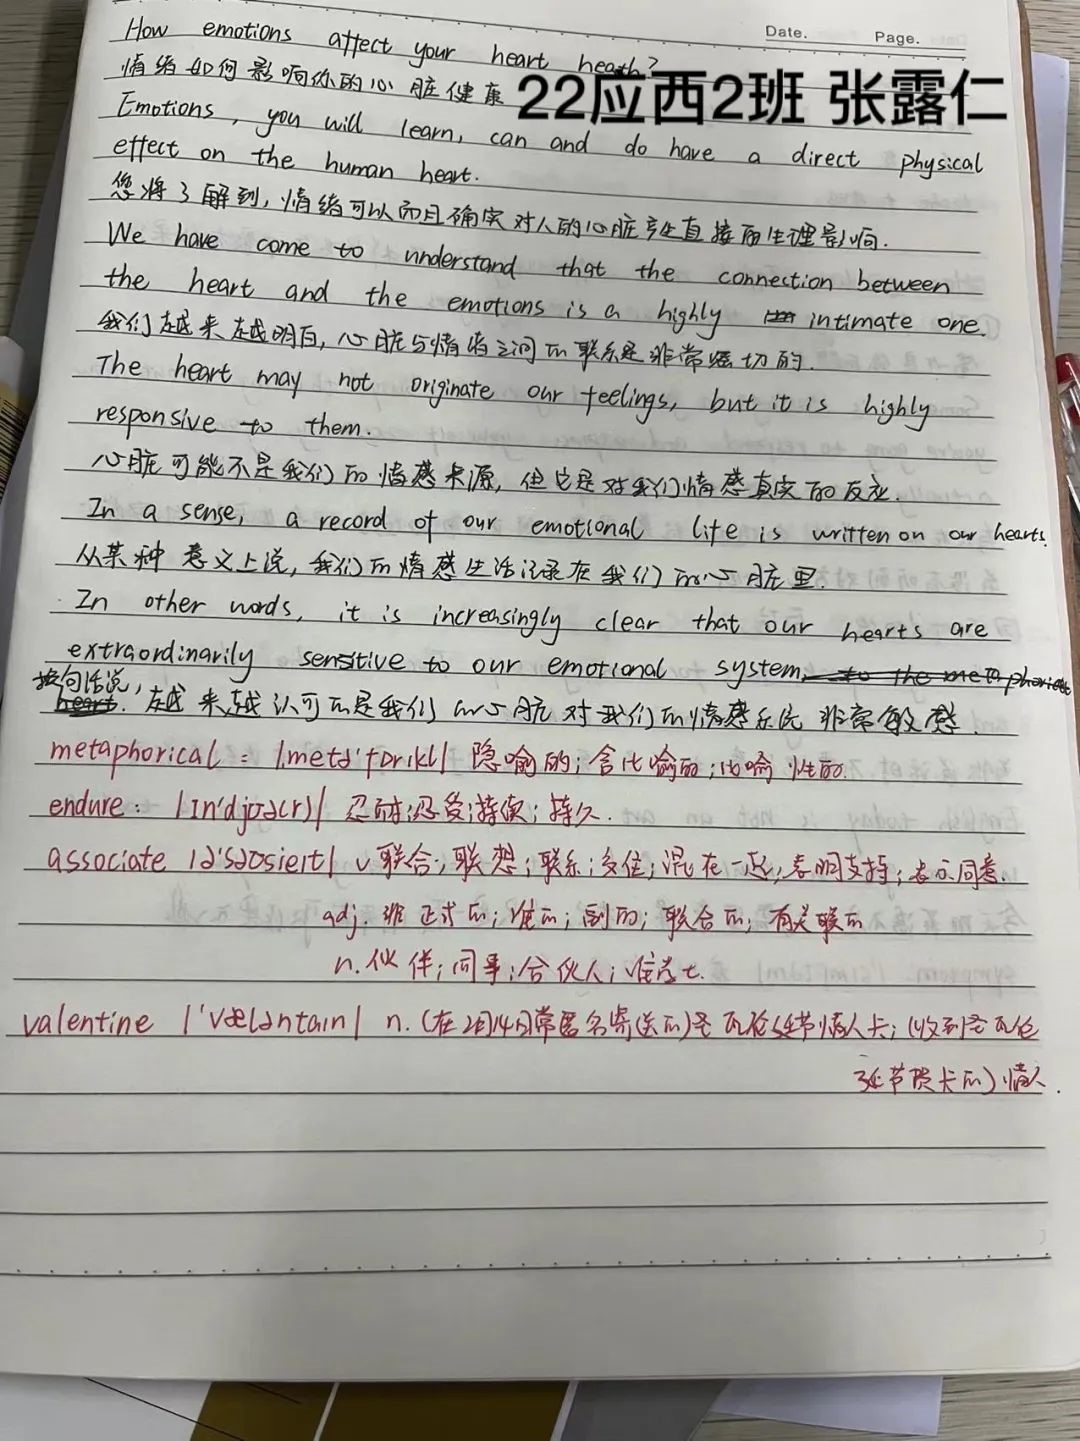 Date. Page.
How emotions affect your heart heath?
情绪如何影响你的心脏健康
22应西2班 张露仁
Emotions, you will learn, can and do have a direct physical
effect on the human heart.
您将了解到,情绪可以而且确实对人的心脏产生直接的生理影响.
We have come to understand that the connection between
the heart and the emotions is a highly intimate one.
我们越来越明白,心脏与情绪之间的联系是非常密切的.
The heart may not originate our feelings, but it is highly
responsive to them.
心脏可能不是我们的情感来源,但它是对我们情感真实的反应.
In a sense, a record of our emotional life is written on our hearts.
从某种意义上说,我们的情感生活记录在我们的心脏里.
In other words, it is increasingly clear that our hearts are
extraordinarily sensitive to our emotional system, to the metaphorical
换句话说,
heart. 越来越认可的是我们的心脏对我们的情感系统非常敏感.
metaphorical: |ˌmetəˈfɒrɪkl| 隐喻的;含比喻的;比喻性的.
endure: |ɪnˈdjʊə(r)| 忍耐;忍受;持续;持久.
associate |əˈsəʊsieɪt| v 联合;联想;联系;交往;混在一起;表明支持;表示同意.
adj. 非正式的;准的;副的;联合的;有关联的
n. 伙伴;同事;合伙人;准学士.
valentine |ˈvæləntaɪn| n. (在2月14日常匿名寄送的)圣瓦伦廷节情人卡;(收到圣瓦伦
廷节贺卡的)情人.